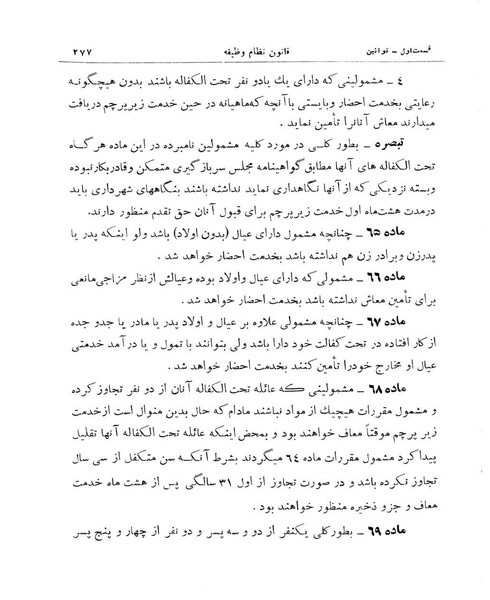 قسمت اول - قوانین قانون نظام وظیفه ۲۷۷
۴ - مشمولینی که دارای یك یادو نفر تحت الکفاله باشند بدون هیچگونه
رعایتی بخدمت احضار وبایستی باآنچه که ماهیانه در حین خدمت زیرپرچم دریافت
میدارند معاش آنانرا تأمین نماید .
تبصره - بطور کلی در مورد کلیه مشمولین نامبرده در این ماده هر گاه
تحت الکفاله های آنها مطابق گواهینامه مجلس سرباز گیری متمکن وقادر بکار نبوده
وبسته نزدیکی که از آنها نگاهداری نماید نداشته باشند بنگاههای شهرداری باید
درمدت هشت ماه اول خدمت زیرپرچم برای قبول آنان حق تقدم منظور دارند.
ماده ۶۵ - چنانچه مشمول دارای عیال (بدون اولاد) باشد ولو اینکه پدر یا
پدرزن وبرادر زن هم نداشته باشد بخدمت احضار خواهد شد .
ماده ۶۶ - مشمولی که دارای عیال واولاد بوده وعیالش ازنظر مزاجی مانعی
برای تأمین معاش نداشته باشد بخدمت احضار خواهد شد .
ماده ۶۷ - چنانچه مشمولی علاوه بر عیال و اولاد پدر یا مادر یا جدو جده
از کار افتاده در تحت کفالت خود دارا باشد ولی بتوانند با تمول و یا درآمد خدمتی
عیال او مخارج خودرا تأمین کنند بخدمت احضار خواهد شد .
ماده ۶۸ - مشمولینی که عائله تحت الکفاله آنان از دو نفر تجاوز کرده
و مشمول مقررات هیچیك از مواد نباشند مادام که حال بدین منوال است ازخدمت
زیر پرچم موقتاً معاف خواهند بود و بمحض اینکه عائله تحت الکفاله آنها تقلیل
پیدا کرد مشمول مقررات ماده ۶۴ میگردند بشرط آنکه سن متکفل از سی سال
تجاوز نکرده باشد و در صورت تجاوز از اول ۳۱ سالگی پس از هشت ماه خدمت
معاف و جزو ذخیره منظور خواهند بود .
ماده ۶۹ - بطور کلی یکنفر از دو و سه پسر و دو نفر از چهار و پنج پسر